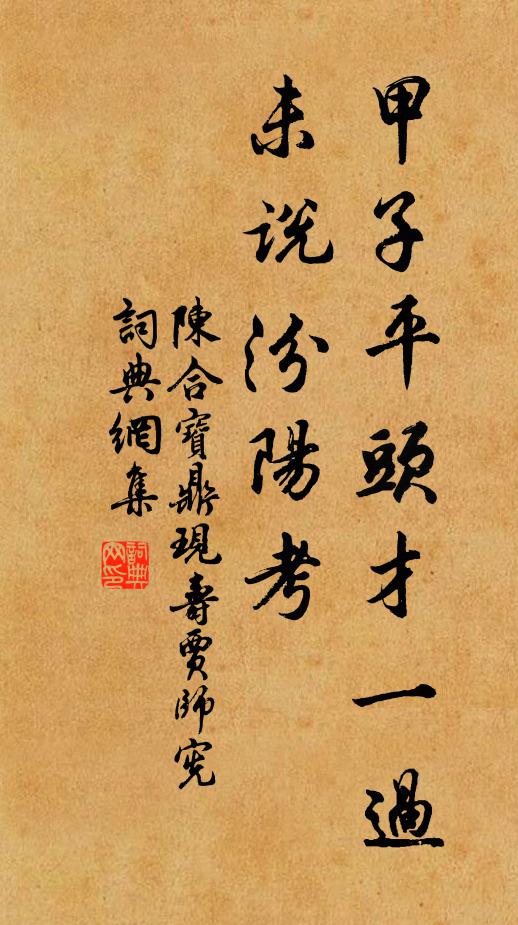 甲子平頭才一過
未説汾陽考
陳合寶鼎現壽賈師宪
詞典網集
詞典
网印